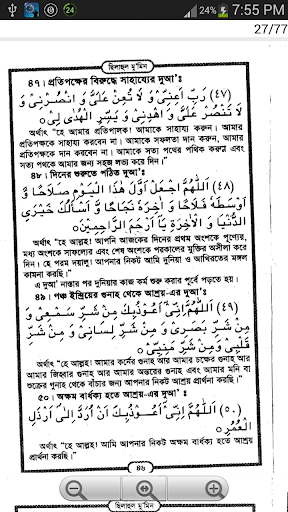 24% 7:55 PM
27/77
ছিলাহুল মু'মিন
৪৭। প্রতিপক্ষের বিরুদ্ধে সাহায্যের দুআ'ঃ
(٤٧) رَبِّ اَعِنِّيْ وَ لَا تُعِنْ عَلَىَّ وَ انْصُرْنِيْ وَ
لَا تَنْصُرْ عَلَىَّ وَ اهْدِنِيْ وَ يَسِّرِ الْهُدٰى لِيْ○
অর্থাৎ “হে আমার প্রতিপালক! আমাকে সাহায্য করুন। আমার
প্রতিপক্ষকে সাহায্য করবেন না। আমাকে সফলতা দান করুন, আমার
প্রতিপক্ষকে দান করবেন না। আমাকে সত্য পথের পথিক করুন এবং
সত্য পথকে আমার জন্য সহজ লভ্য করে দিন।”
৪৮। দিনের শুরুতে পঠিত দুআ'ঃ
(٤٨) اَللّٰهُمَّ اجْعَلْ اَوَّلَ هٰذَا الْيَوْمِ صَلَاحًا وَّ
اَوْسَطَهٗ فَلَاحًا وَّ اٰخِرَهٗ نَجَاحًا وَّ اَسْاَلُكَ خَيْرَيِ
الدُّنْيَا وَ الْاٰخِرَةِ يَآ اَرْحَمَ الرَّاحِمِيْنَ○
অর্থাৎ “হে আল্লাহ! আপনি আজকের দিনের প্রথম অংশকে পুণ্যের,
মধ্য অংশকে সাফল্যের এবং শেষ অংশকে পরকালের মুক্তির অসীলা করে
দিন। হে পরম দয়ালু! আপনার নিকট আমি দুনিয়া ও আখিরতের মঙ্গল
কামনা করছি।”
এ দুআ' নাস্তার পর দুনিয়ার কাজ কর্ম শুরু করার পূর্বে পড়তে হয়।
৪৯। পঞ্চ ইন্দ্রিয়ের গুনাহ থেকে আশ্রয়-এর দুআ'ঃ
(٤٩) اَللّٰهُمَّ اِنِّيْٓ اَعُوْذُ بِكَ مِنْ شَرِّ سَمْعِيْ وَ
مِنْ شَرِّ بَصَرِيْ وَ مِنْ شَرِّ لِسَانِيْ وَ مِنْ شَرِّ
قَلْبِيْ وَ مِنْ شَرِّ مَنِيِّيْ○
অর্থাৎ “হে আল্লাহ! আমার কর্নের গুনাহ আর আমার চক্ষের গুনাহ আর
আমার জিহ্বার গুনাহ আর আমার অন্তরের গুনাহ এবং আমার মনি বা
শুক্রের গুনাহ থেকে বাঁচার জন্য আপনার নিকট আশ্রয় প্রার্থনা করছি।”
৫০। অক্ষম বার্ধক্য হতে আশ্রয়-এর দুআ'ঃ
(٥٠) اَللّٰهُمَّ اِنِّيْٓ اَعُوْذُ بِكَ اَنْ اُرَدَّ اِلٰٓى اَرْذَلِ
الْعُمُرِ○
অর্থাৎ “হে আল্লাহ! আমি আপনার নিকট অক্ষম বার্ধক্য হতে আশ্রয়
প্রার্থনা করছি।”
৪৬
ছিলাহুল মু'মিন